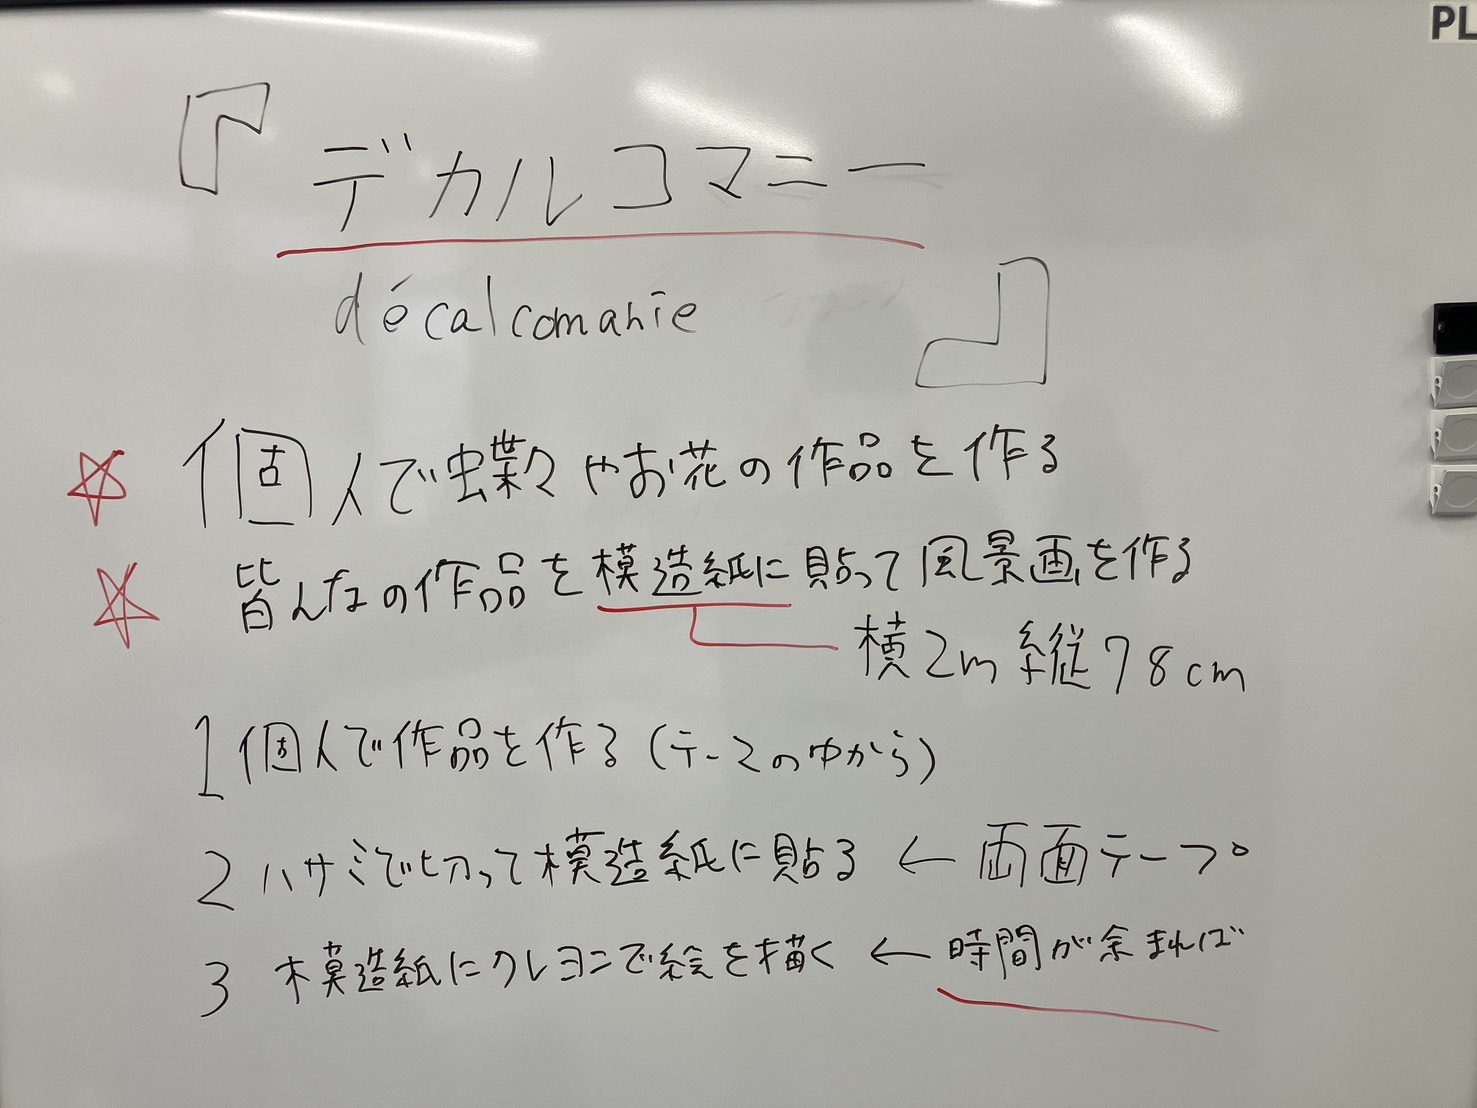 PL
『デカルコマニー
décalcomanie』
☆ 個人で蝶々やお花の作品を作る
☆ 皆んなの作品を模造紙に貼って風景画を作る
横2m 縦78cm
1 個人で作品を作る(テーマの中から)
2 ハサミで切って模造紙に貼る ← 両面テープ
3 模造紙にクレヨンで絵を描く ← 時間が余まれば